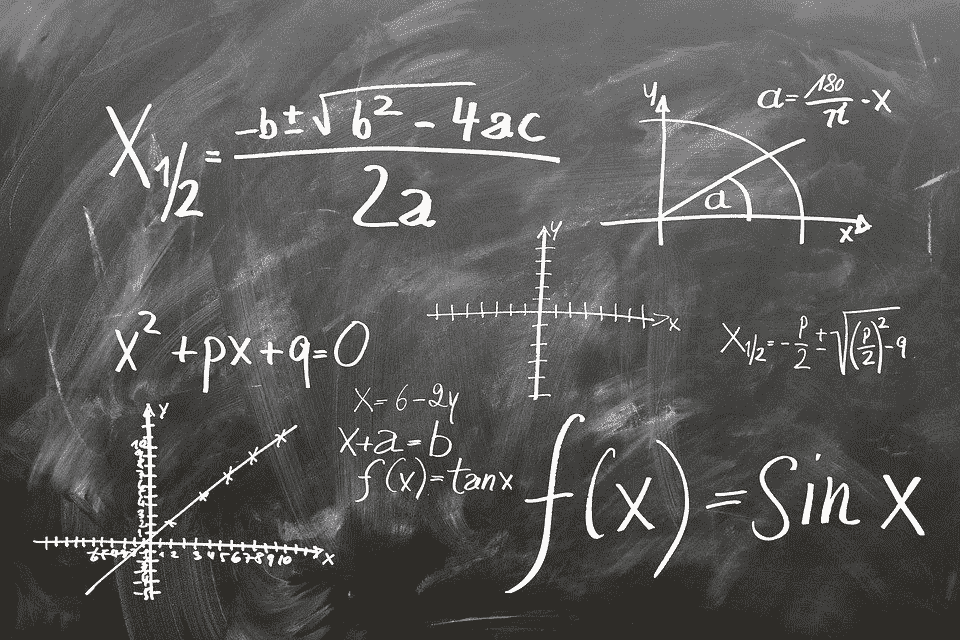 X1/2 = (-b ± √(b² - 4ac)) / 2a
y
a = 180/π · x
a
x
y
x
x² + px + q = 0
X1/2 = - p/2 ± √((p/2)² - q)
x = 6 - 2y
x + a = b
f(x) = tan x
f(x) = Sin x
y
1 2 3 4 5 6 7 8 9 10
x